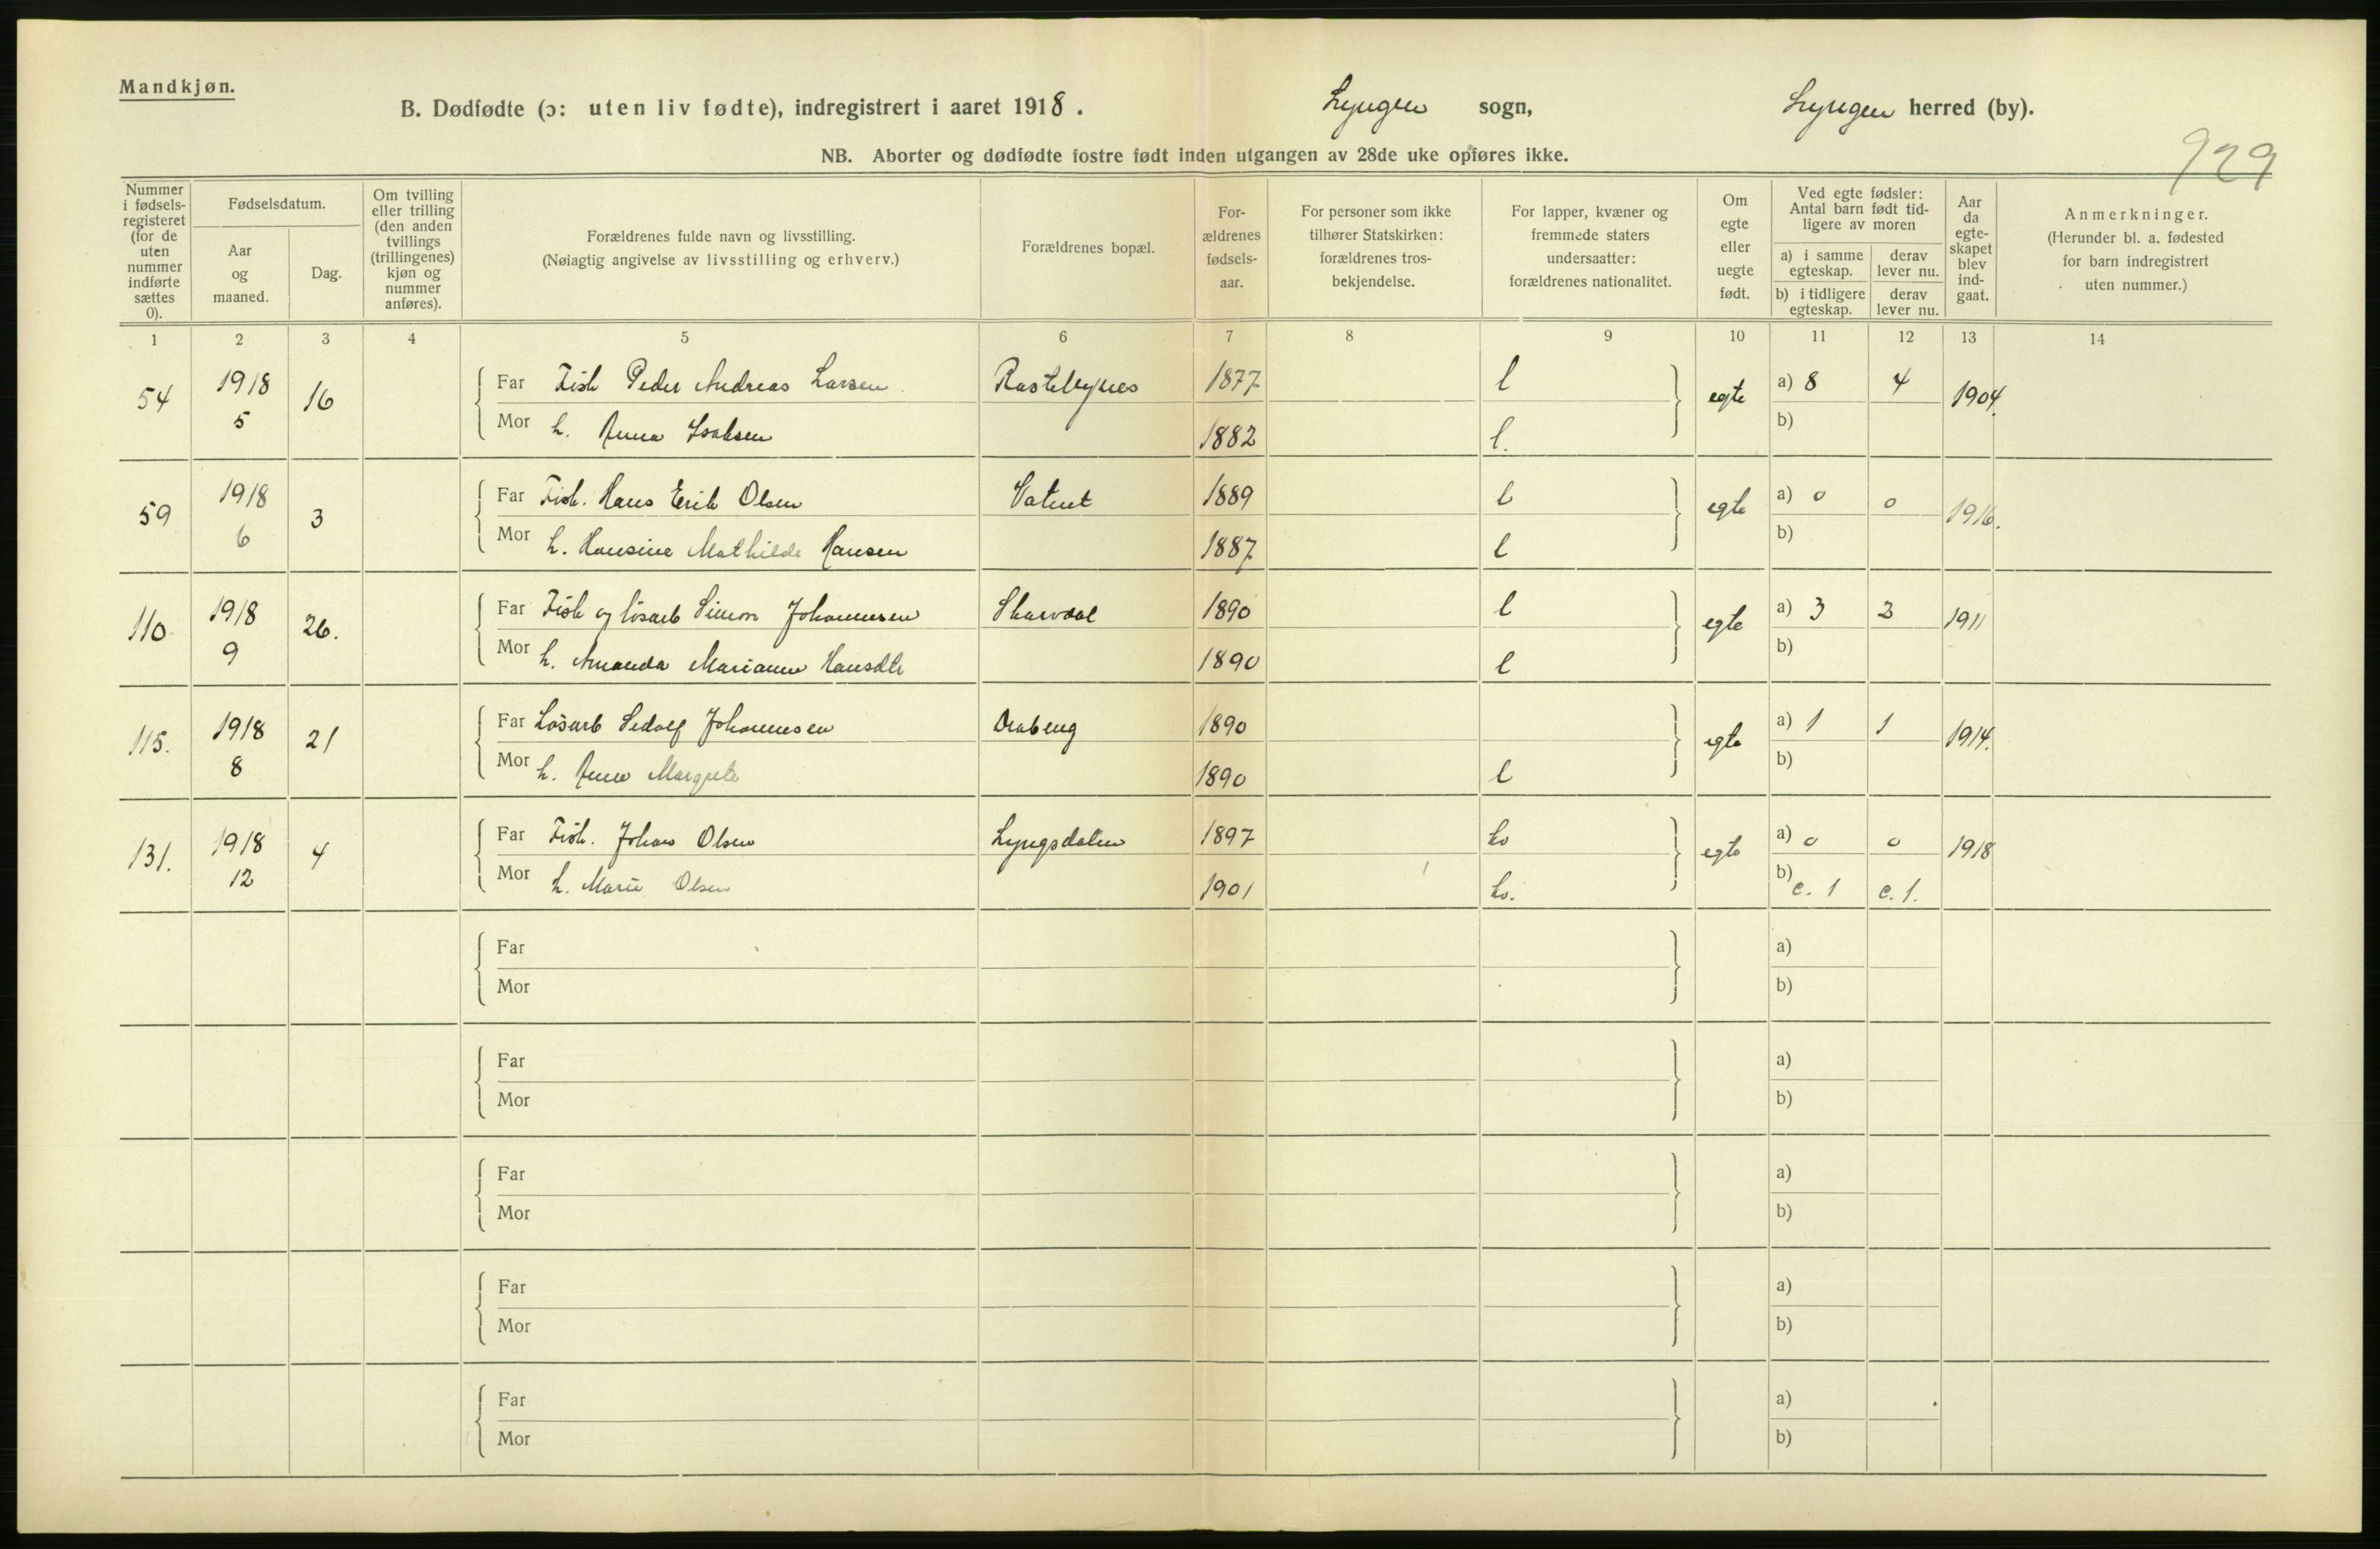 Mandkjøn.
B. Dødfødte (ɔ: uten liv fødte), indregistrert i aaret 1918. Lyngen sogn, Lyngen herred (by).
NB. Aborter og dødfødte fostre født inden utgangen av 28de uke opføres ikke.
929
Nummer i fødsels-registeret (for de uten nummer indførte sættes 0).
Fødselsdatum.
Aar og maaned.
Dag.
Om tvilling eller trilling (den anden tvillings (trillingenes) kjøn og nummer anføres).
Forældrenes fulde navn og livsstilling.
(Nøiagtig angivelse av livsstilling og erhverv.)
Forældrenes bopæl.
For-ældrenes fødsels-aar.
For personer som ikke tilhører Statskirken: forældrenes tros-bekjendelse.
For lapper, kvæner og fremmede staters undersaatter: forældrenes nationalitet.
Om egte eller uegte født.
Ved egte fødsler: Antal barn født tid-ligere av moren
a) i samme egteskap. derav lever nu.
b) i tidligere egteskap. derav lever nu.
Aar da egte-skapet blev ind-gaat.
Anmerkninger.
(Herunder bl. a. fødested for barn indregistrert uten nummer.)
1 2 3 4 5 6 7 8 9 10 11 12 13 14
54 1918 5 16 Far Fisk Peder Andreas Larsen 1877 l egte a) 8 4 1904.
Mor h. Anna Isaksen 1882 l. b)
59 1918 6 3 Far Fisk. Hans Erik Olsen Vatnet 1889 l egte a) 0 0 1916.
Mor h. Hansine Mathilde Hansen 1887 l b)
110 1918 9 26. Far Fisk og løsarb Simon Johannesen Skarvdal 1890 l egte a) 3 3 1911
Mor h. Amanda Marianne Hansdtr 1890 l b)
115. 1918 8 21 Far Løsarb Sedolf Johannesen 1890 egte a) 1 1 1914.
Mor h. Anna Margrete 1890 l b)
131. 1918 12 4 Far Fisk. Johan Olsen Lyngsdalen 1897 kv egte a) 0 0 1918
Mor h. Marie Olsen 1901 kv. b) e. 1 e. 1.
Far a)
Mor b)
Far a)
Mor b)
Far a)
Mor b)
Far a)
Mor b)
Far a)
Mor b)